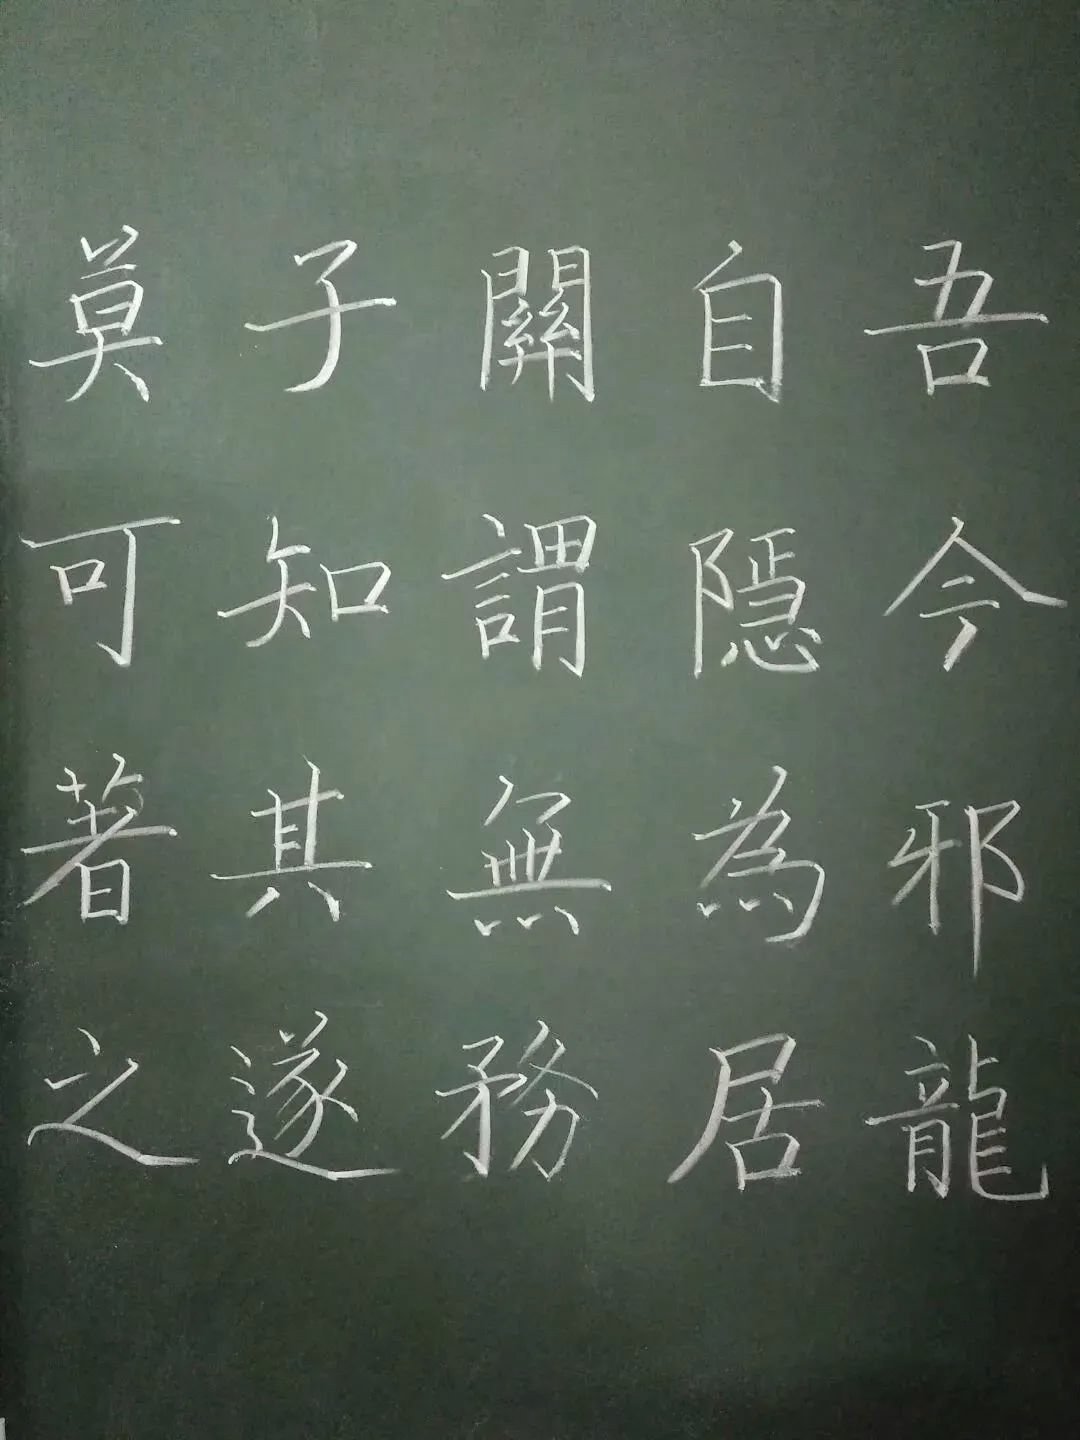 吾今邪龍
自隱為居
關謂無務
子知其遂
莫可著之